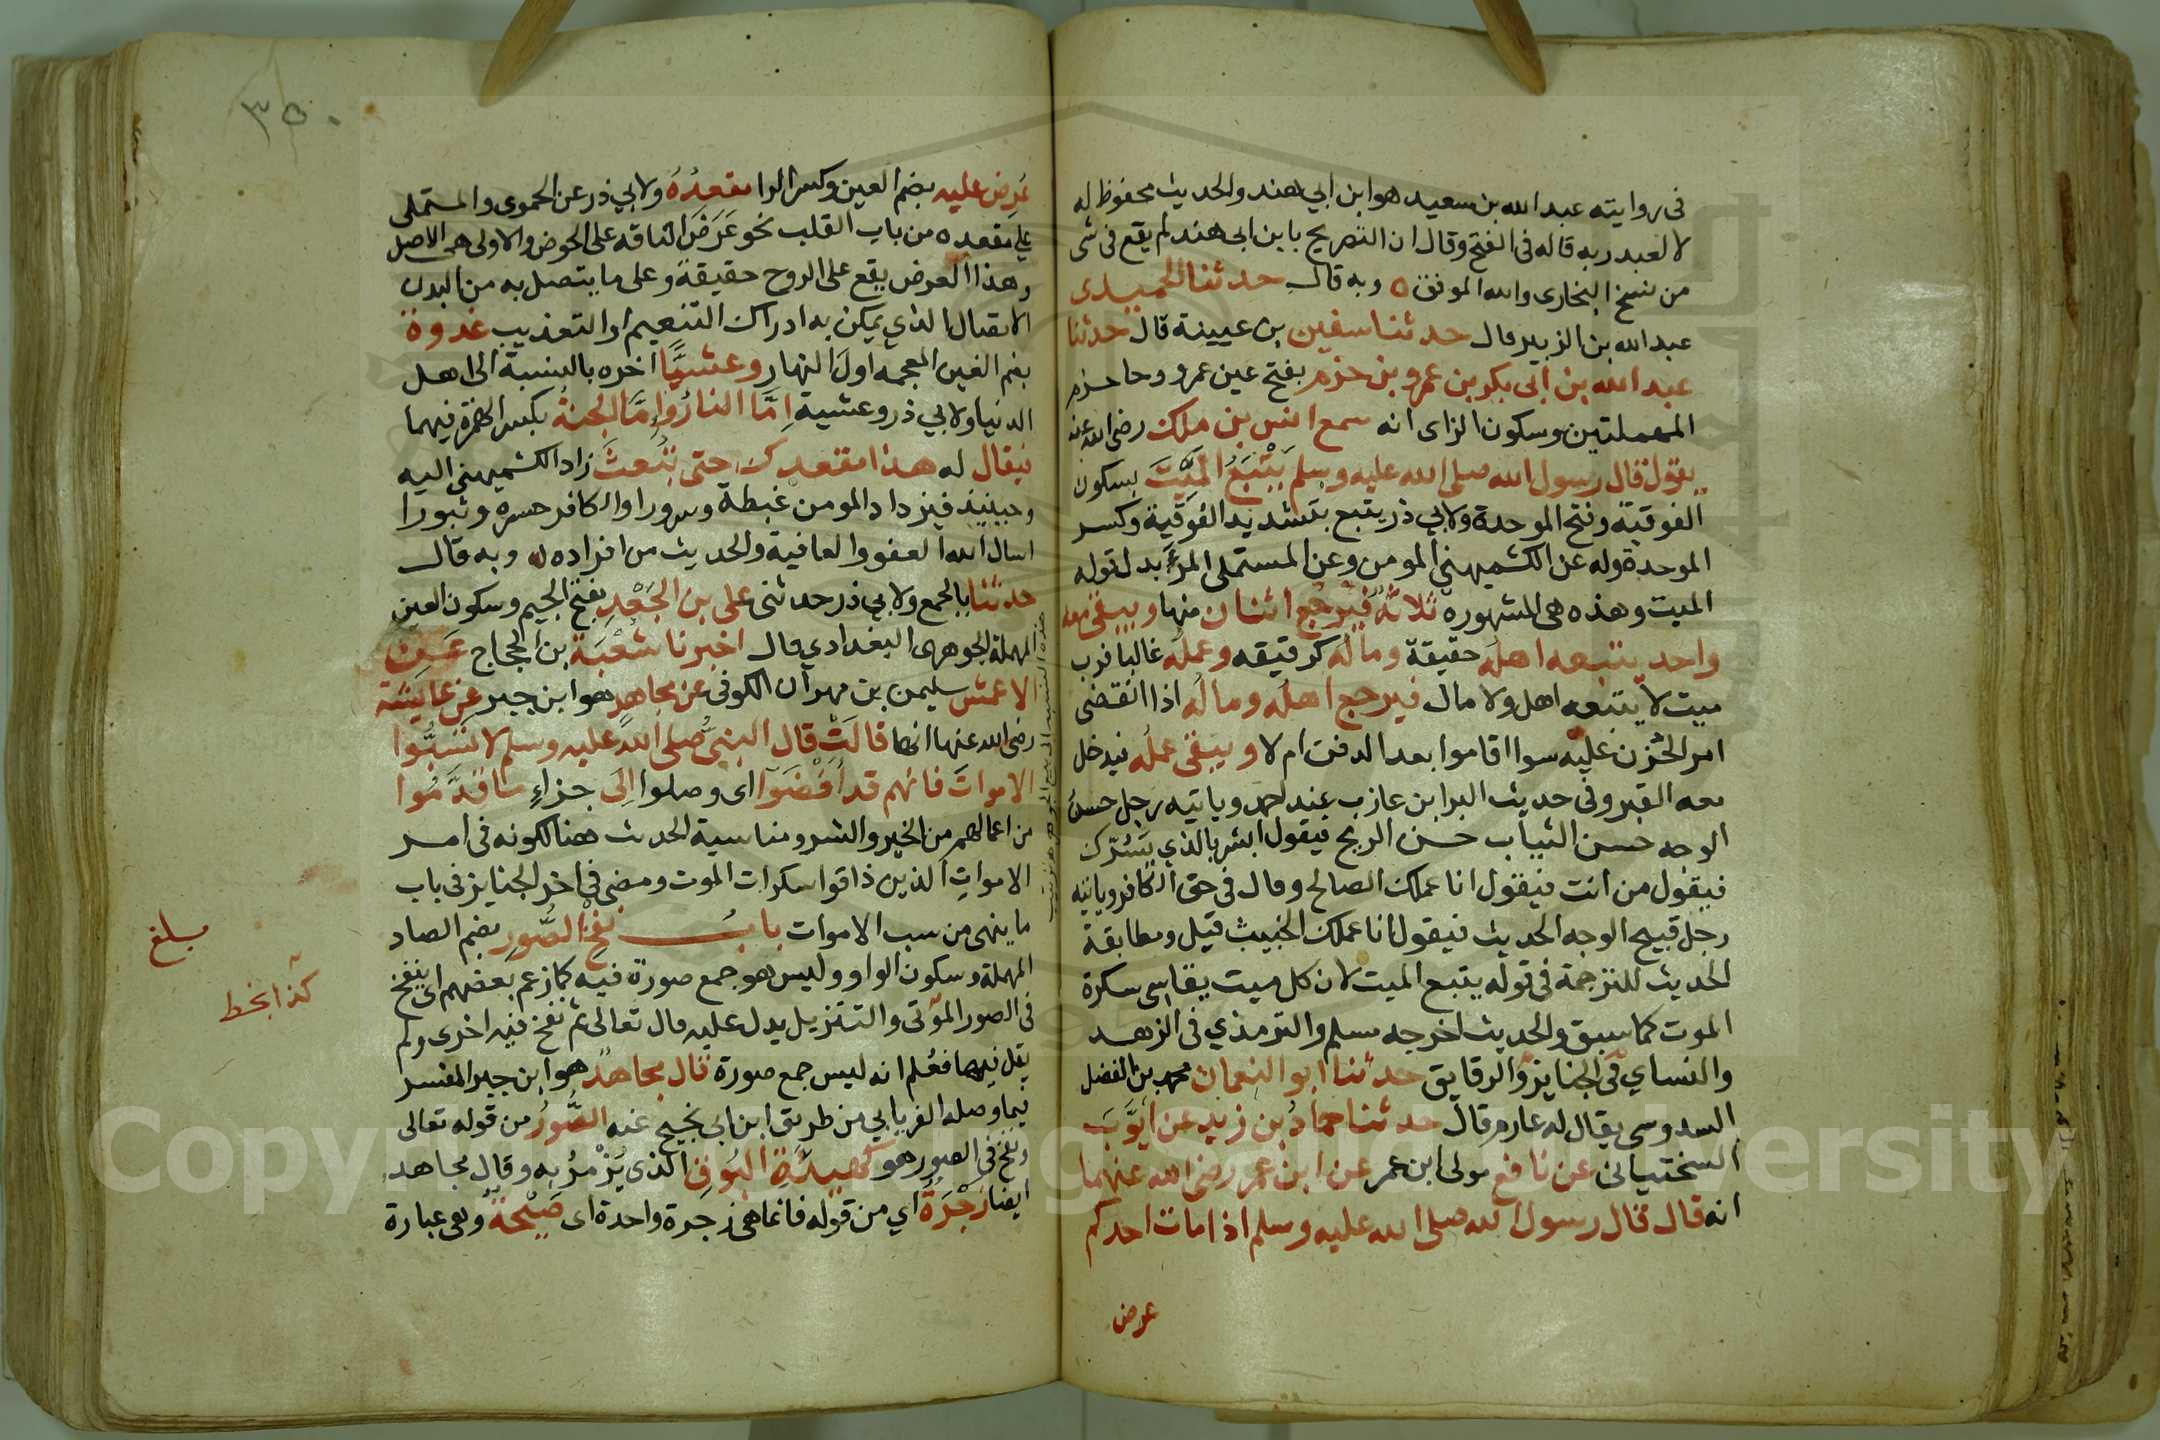 في روايته عبد الله بن سعيد هو ابن ابي هند والحديث محفوظ له
لا لعبد ربه قاله في الفتح وقال ان التصريح بابن ابي هند لم يقع في شي
من نسخ البخارى والله الموفق ه وبه قال حدثنا الحميدى
عبد الله بن الزبير قال حدثنا سفين بن عيينة قال حدثنا
عبد الله بن ابى بكر بن عمرو بن حزم بفتح عين عمرو وحا حزم
المهملتين وسكون الزاى انه سمع انس بن ملك رضي الله عنه
يقول قال رسول الله صلى الله عليه وسلم يَتْبَعُ الميِّتَ بسكون
الفوقية وفتح الموحدة ولابي ذر يتبع بتشديد الفوقية وكسر
الموحدة وله عن الكشميهني المومن وعن المستملي المرء بدل قوله
الميت وهذه هي المشهوره ثلاثةٌ فيرجع اثنان منها ويبقى معه
واحد يتبعه اهله حقيقة وماله كرقيقه وعمله غالبا فرب
ميت لا يتبعه اهل ولا مال فيرجع اهله وماله اذا انقضى
امر الحزن عليه سوا اقاموا بعد الدفن ام لا ويبقى عمله فيدخل
معه القبر وفي حديث البرا بن عازب عند احمد وياتيه رجل حسن
الوجه حسن الثياب حسن الريح فيقول ابشر بالذي يَسُرّك
فيقول من انت فيقول انا عملك الصالح وقال في حق الكافر وياتيه
رجل قبيح الوجه الحديث فيقول انا عملك الخبيث قيل ومطابقة
الحديث للترجمة في قوله يتبع الميت لان كل ميت يقاسي سكرة
الموت كما سبق والحديث اخرجه مسلم والترمذي في الزهد
والنساي في الجنايز والرقايق حدثنا ابو النعمان محمد بن الفضل
السدوسي يقال له عارم قال حدثنا حماد بن زيد عن ايوب
السختياني عن نافع مولى ابن عمر عن ابن عمر رضي الله عنهما
انه قال قال رسول الله صلى الله عليه وسلم اذا مات احدكم
عرض
٣٥٠
عُرِض عليه بضم العين وكسر الرا مقعدُهُ ولابي ذر عن الحموى والمستملي
على مقعده من باب القلب نحو عَرَضَ الناقه على الحوض والاولى هي الاصل
وهذا العرض يقع على الروح حقيقة وعلى ما يتصل به من البدن
الاتصال الذي يمكن به ادراك التنعيم او التعذيب غدوة
بضم الغين المعجمه اول النهار وعشيًّا اخره بالنسبة الى اهل
الدنيا ولابي ذر وعشية اِمَّا النارُ واِمَّا الجنةُ بكسر الهمزة فيهما
فيقال له هذا مقعدك حتى تُبعثَ زاد الكشميهني اليه
وحينيذ فيزداد المومن غبطة وسرورا والكافر حسره وثبورا
اسال الله العفو والعافية والحديث من افراده ه وبه قال
حدثنا بالجمع ولابي ذر حدثني على بن الجَعْدِ بفتح الجيم وسكون العين
المهملة الجوهرى البغدادي قال اخبرنا شُعْبَة بن الحجاج عَنِ
الاعمش سليمن بن مهران الكوفي عن مجاهد هو ابن جبر عن عايشة
رضي الله عنها انها قالَتْ قال النبيُّ صلى الله عليه وسلم لا تَسُبُّوا
الامواتَ فانهم قد اَفْضَوْا اى وصلوا اِلَى جزاءِ ما قدَّمُوا
من اعمالهم من الخير والشر ومناسبة الحديث هنا لكونه في امر
الامواتِ الذين ذاقوا سكرات الموت ومضى في اخر الجنايز في باب
ما ينهى من سب الاموات بابُ نفخ الصُّورِ بضم الصاد
المهملة وسكون الواو وليس هو جمع صورة فيه كما زعم بعضهم اى ينفخ
في الصور الموتى والتنزيل يدل عليه قال تعالى ثم نفخ فيه اخرى ولم
يقل فيها فعُلم انه ليس جمع صورة قال مجاهدٌ هو ابن جبر المفسر
فيما وصله الفريابي من طريق ابن ابي نجيح عنه الصُّورُ من قوله تعالى
ونفخ في الصور هو كهيئةِ البُوقِ الذى يُزْمرُ به وقال مجاهد
ايضا زَجْرَةٌ اي من قوله فانما هي زجرة واحدة اى صَيْحةٌ وهي عبارة
بلغ
كذا بخط
Copyright © King Saud University